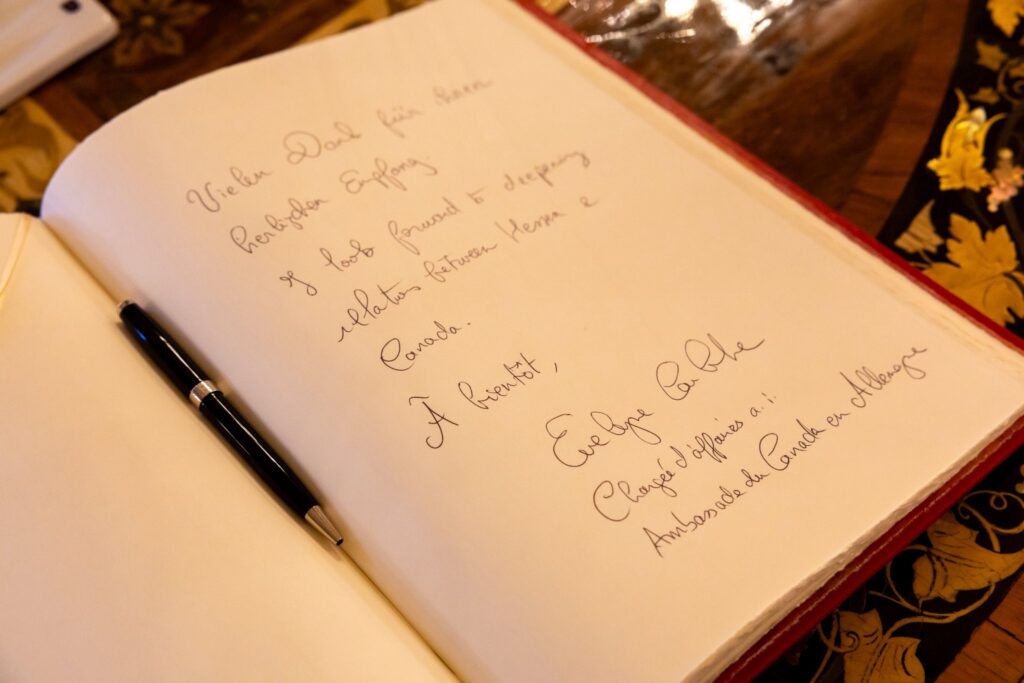 Vielen Dank für ihren
herzlichen Empfang.
I look forward to deepening
relations between Hessen &
Canada.
À bientôt,
Evelyne
Chargée d'affaires a.i.
Ambassade du Canada en Allemagne